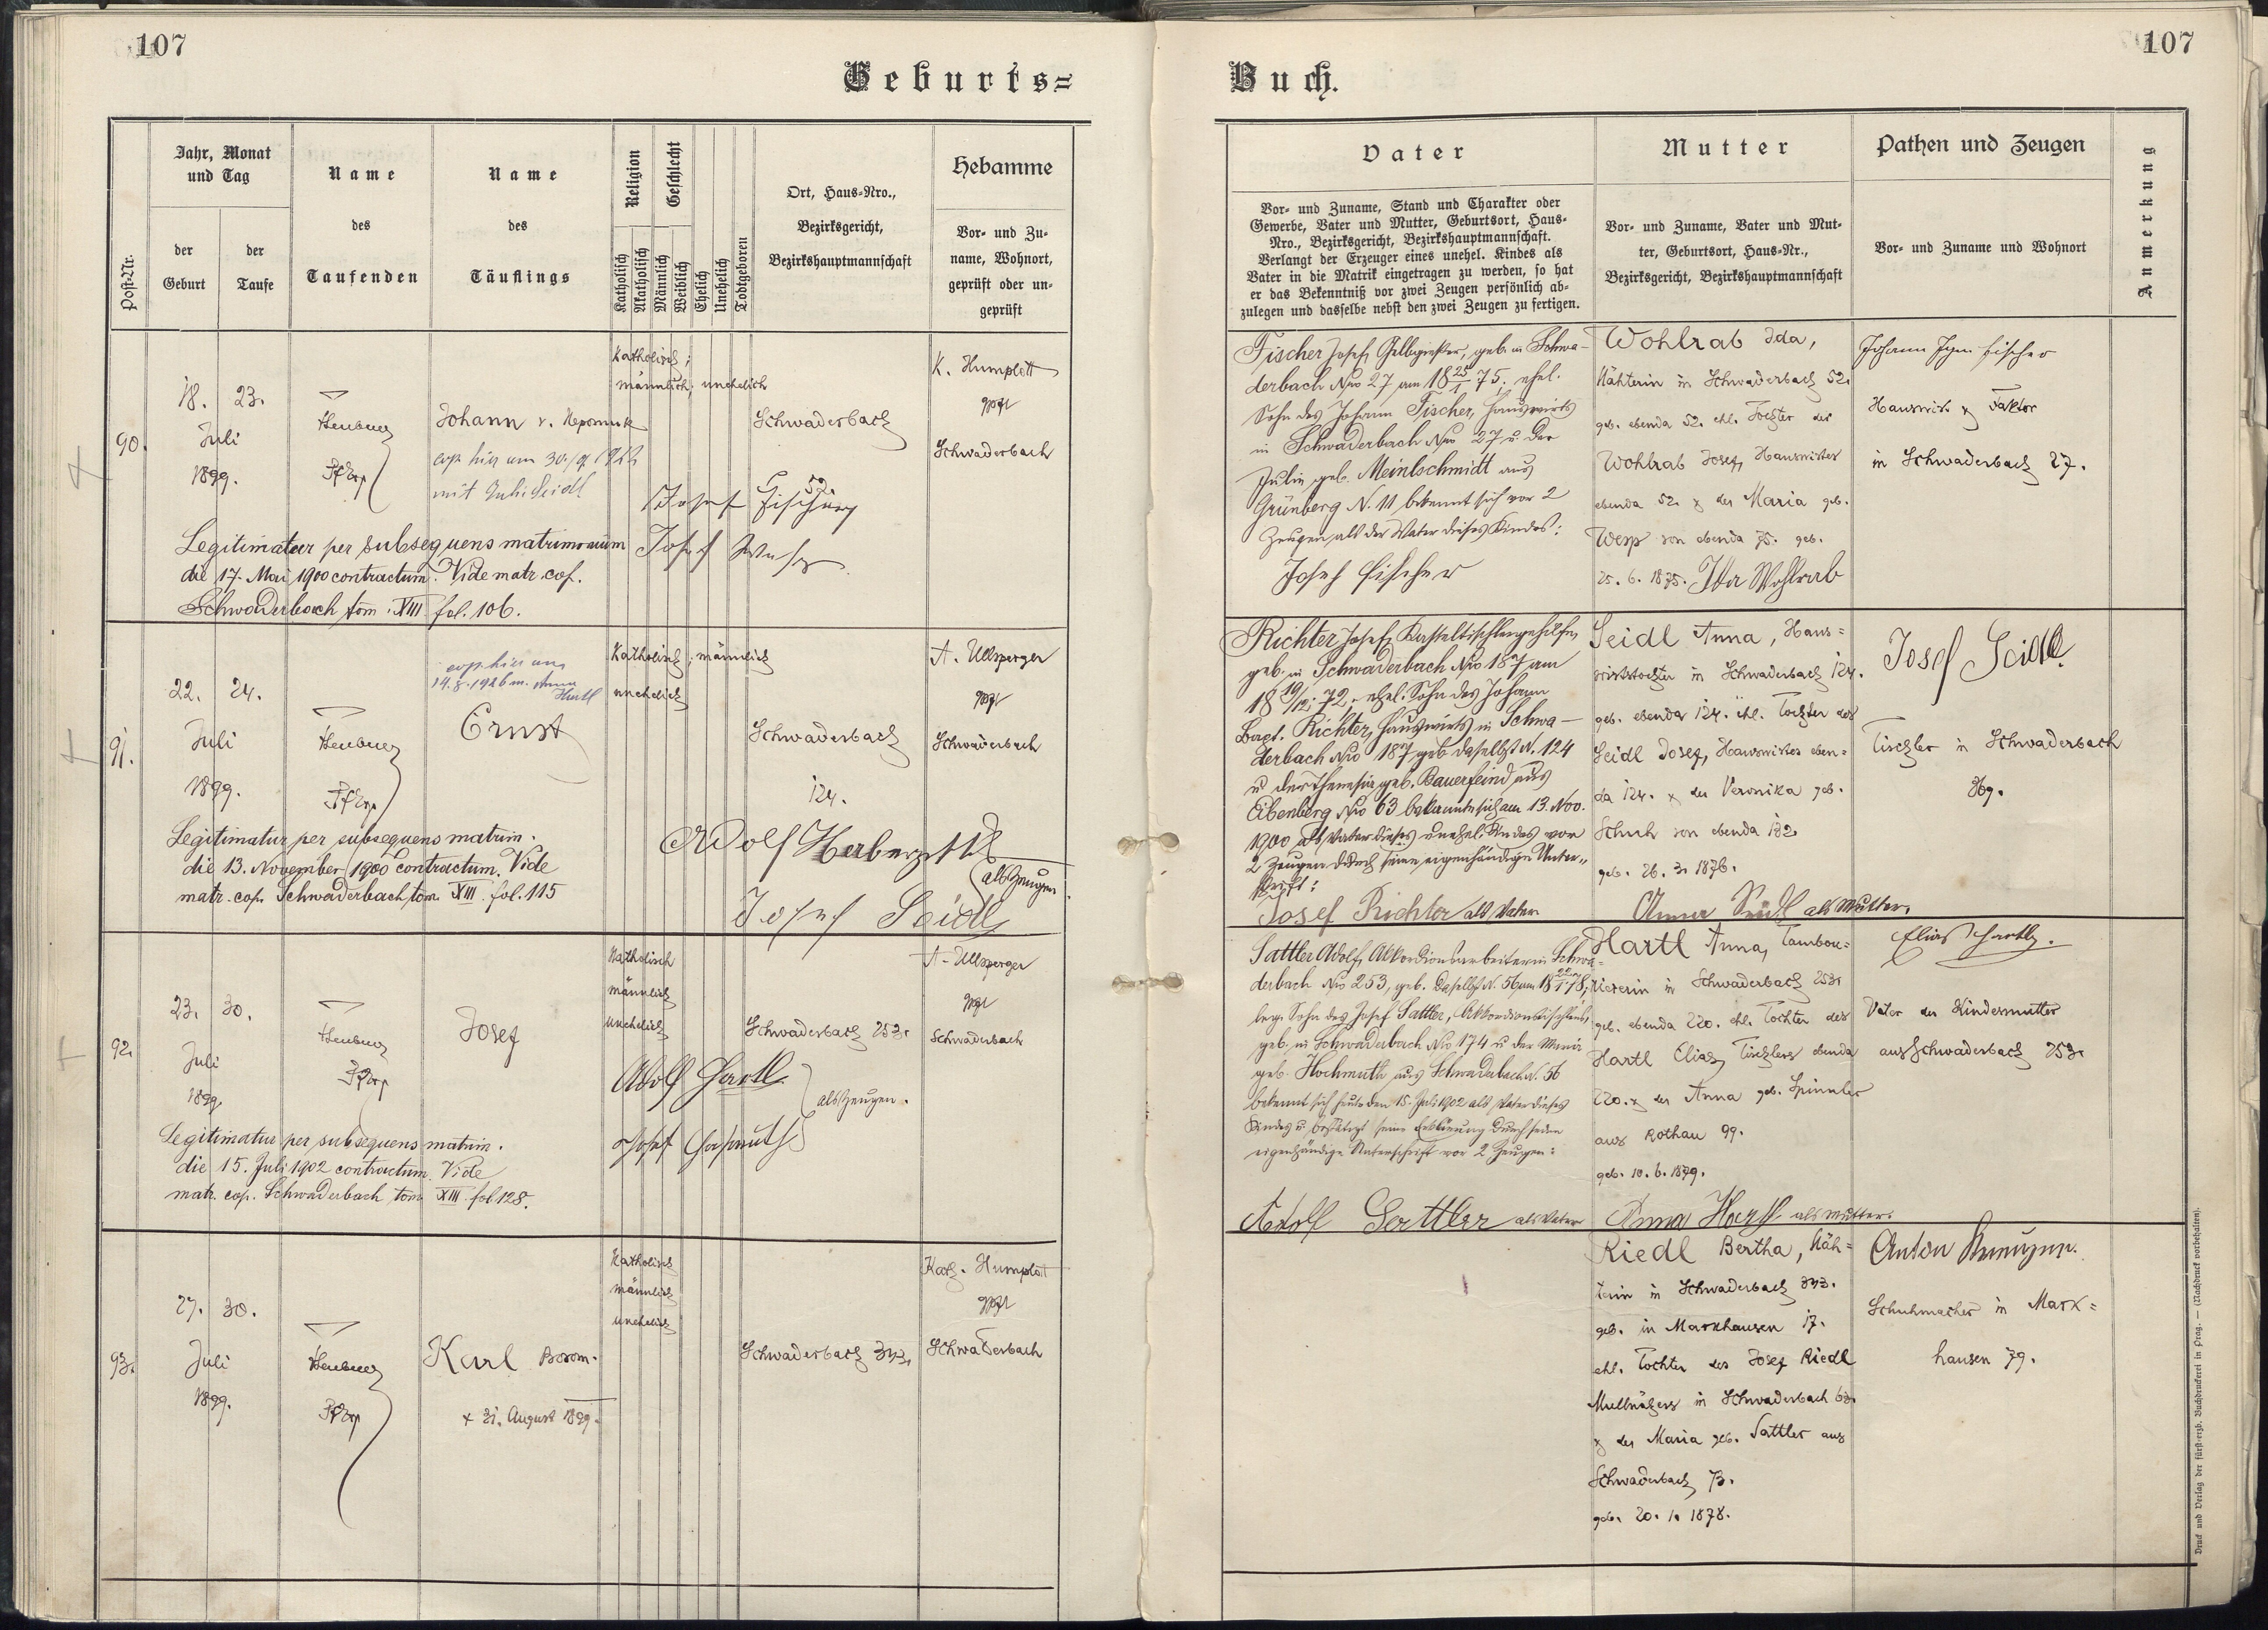 107
Geburts=
Jahr, Monat
und Tag
Name
Name
Religion
Geschlecht
Hebamme
Post-Nr.
der
Geburt
der
Taufe
des
Taufenden
des
Täuflings
Katholisch
Akatholisch
Männlich
Weiblich
Ehelich
Unehelich
Todtgeboren
Ort, Haus-Nro.,
Bezirksgericht,
Bezirkshauptmannschaft
Vor- und Zu-
name, Wohnort,
geprüft oder un-
geprüft
90.
18. 23.
Juli
1899.
Johann v. Nepomuk
mit Julie Seidl
Katholisch;
männlich; unehelich
Schwaderbach
52.
K. Humplott
Schwaderbach
Josef Fischer
Josef
Legitimatur per subsequens matrimonium
die 17. Mai 1900 contractum. Vide matr. cop.
Schwaderbach tom. XIII. fol. 106.
91.
22. 24.
Juli
1899.
cop. hier am
14.8.1926 m. Anna
Hartl
Ernst
Katholisch; männlich
unehelich
Schwaderbach
124.
A. Ullsperger
Schwaderbach
Legitimatur per subsequens matrim.
die 13. November 1900 contractum. Vide
matr. cop. Schwaderbach tom. XIII. fol. 115
Adolf
als Zeugen.
Josef Seidl
92.
23. 30.
Juli
1899
Josef
Katholisch
männlich
unehelich
Schwaderbach 253.
A. Ullsperger
Schwaderbach
Adolf Hartl
als Zeugen.
Josef
Legitimatur per subsequens matrim.
die 15. Juli 1902 contractum. Vide
matr. cop. Schwaderbach tom XIII. fol 128.
93.
27. 30.
Juli
1899.
Karl Borom.
+ 31. August 1899.
Katholisch
männlich
unehelich
Schwaderbach 343.
Kath. Humplott
Schwaderbach
107
Buch.
Vater
Mutter
Pathen und Zeugen
Anmerkung
Vor- und Zuname, Stand und Charakter oder
Gewerbe, Vater und Mutter, Geburtsort, Haus-
Nro., Bezirksgericht, Bezirkshauptmannschaft.
Verlangt der Erzeuger eines unehel. Kindes als
Vater in die Matrik eingetragen zu werden, so hat
er das Bekenntniß vor zwei Zeugen persönlich ab-
zulegen und dasselbe nebst den zwei Zeugen zu fertigen.
Vor- und Zuname, Vater und Mut-
ter, Geburtsort, Haus-Nr.,
Bezirksgericht, Bezirkshauptmannschaft
Vor- und Zuname und Wohnort
Fischer Josef, Gelbgießer, geb. in Schwa-
derbach Nro 27 am 18 25/1 75, ehel.
Sohn des Johann Fischer, Hauswirts
in Schwaderbach Nro 27 u. der
Julie geb. Meinlschmidt aus
Grünberg N. 11 bekennt sich vor 2
Zeugen als der Vater dieses Kindes:
Josef Fischer
Wohlrab Ida,
Nähterin in Schwaderbach 52.
geb. ebenda 52. ehl. Tochter des
Wohlrab Josef, Hauswirtes
ebenda 52. & der Maria geb.
Wesp von ebenda 75. geb.
25. 6. 1875. Ida Wohlrab
Johann Fischer
Hauswirt & Faktor
in Schwaderbach 27.
Richter Josef,
geb. in Schwaderbach Nro 187 am
18 19/12 72, ehel. Sohn des Johann
Bapt. Richter, Hauswirts in Schwa-
derbach Nro 187 geb. daselbst N. 124
u der Theresia geb. Bauerfeind aus
Eibenberg Nro 63 bekannte sich am 13. Nov.
1900 als Vater dieses unehel. Kindes vor
2 Zeugen durch seine eigenhändige Unter-
schrift:
Josef Richter als Vater
Seidl Anna, Haus=
wirtstochter in Schwaderbach 124.
geb. ebenda 124. ehl. Tochter des
Seidl Josef, Hauswirtes eben=
da 124. & der Veronika geb.
Schuh von ebenda 182
geb. 26. 3. 1876.
Anna Seidl als Mutter.
Josef Seidl
Tischler in Schwaderbach
369.
Sattler Adolf, Akkordionsarbeiter in Schwa-
derbach Nro 253, geb. daselbst N. 56 am 18 22/1 78,
leg. Sohn des Josef Sattler, Akkordiontischlers,
geb. in Schwaderbach Nro 174 u der Maria
geb. Hochmuth aus Schwaderbach N. 56
bekennt sich heute den 15. Juli 1902 als Vater dieses
Kindes u. bestätigt seine Erklärung durch seine
eigenhändige Unterschrift vor 2 Zeugen:
Adolf Sattler als Vater
Hartl Anna, Tambou=
riererin in Schwaderbach 253.
geb. ebenda 220. ehl. Tochter des
Hartl Elias, Tischlers ebenda
220. & der Anna geb. Spinnler
aus Rothau 99.
geb. 10. 6. 1879.
Anna Hartl als Mutter.
Elias Hartl.
Vater der Kindesmutter
aus Schwaderbach 253.
Riedl Bertha, Näh=
terin in Schwaderbach 343.
geb. in Markhausen 17.
ehl. Tochter des Josef Riedl
in Schwaderbach 63.
& der Maria geb. Sattler aus
Schwaderbach 73.
geb. 20. 1. 1878.
Anton
Schuhmacher in Mark=
hausen 79.
Druck und Verlag der fürst-erzb. Buchdruckerei in Prag. — (Nachdruck vorbehalten).